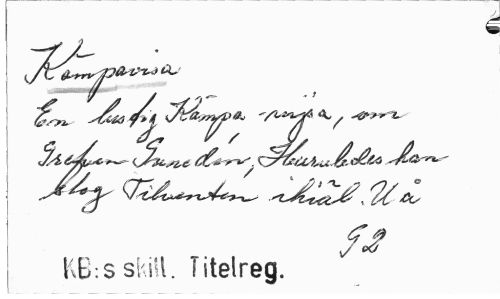 Kämpavisa
En lustig Kämpa-wijsa, om
Grefwen Gunedón, Huruledes han
slog Tilventen ihiäl. U å
G2
KB:s skill. Titelreg.